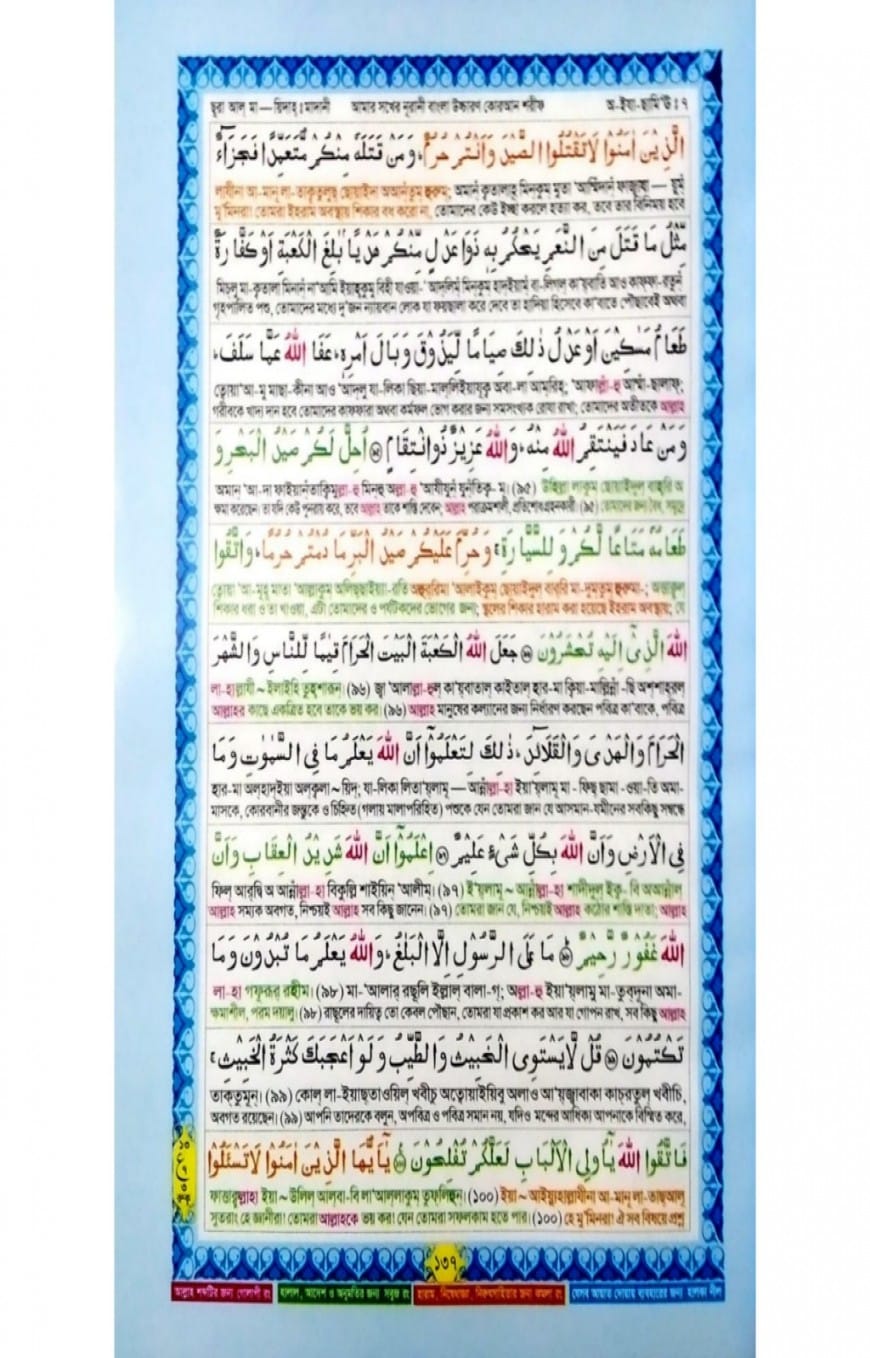 ছূরা আল্ মা — য়িদাহ্ : মাদানী আমার সখের নূরানী বাংলা উচ্চারণ কোরআন শরীফ অ-ইযা-ছামি'ঊ : ৭
الَّذِيْنَ اٰمَنُوْا لَا تَقْتُلُوا الصَّيْدَ وَاَنْتُمْ حُرُمٌ ؕ وَمَنْ قَتَلَهٗ مِنْكُمْ مُّتَعَمِّدًا فَجَزَآءٌ
লাযীনা আ-মানূ লা-তাক্বতুলুছ্ ছোয়াইদা অআনতুম্ হুরুম্; অমান্ ক্বাতালাহূ মিনকুম্ মুতা'আম্মিদান্ ফাজ্বাযা — য়ুম্
মু'মিনরা! তোমরা ইহরাম অবস্থায় শিকার বধ করো না, তোমাদের কেউ ইচ্ছা করলে হত্যা কর, তবে তার বিনিময় হবে
مِّثْلُ مَا قَتَلَ مِنَ النَّعَمِ يَحْكُمُ بِهٖ ذَوَا عَدْلٍ مِّنْكُمْ هَدْيًۢا بٰلِغَ الْكَعْبَةِ اَوْ كَفَّارَةٌ
মিছ্লু মা-ক্বাতালা মিনান্ না'আমি ইয়াহ্কুমু বিহী যাওয়া-'আদ্লিম্ মিন্কুম্ হাদ্ইয়াম্ বা-লিগাল্ কা'বাতি আও কাফ্ফা-রাতুন্
গৃহপালিত পশু, তোমাদের মধ্যে দু'জন ন্যায়বান লোক যা ফয়ছালা করে দেবে তা হাদিয়া হিসেবে কা'বাতে পৌছাবেই অথবা
طَعَامُ مَسٰكِيْنَ اَوْ عَدْلُ ذٰلِكَ صِيَامًا لِّيَذُوْقَ وَبَالَ اَمْرِهٖ ؕ عَفَا اللّٰهُ عَمَّا سَلَفَ ؕ
ত্বোয়া'আ-মু মাছা-কীনা আও 'আদলু যা-লিকা ছিয়া-মাল্লিইয়াযূক্ব অবা-লা আমরিহ্; 'আফাল্লা-হু 'আম্মা-ছালাফ্;
গরীবকে খাদ্য দান হবে তোমাদের কাফফারা অথবা কর্মফল ভোগ করার জন্য সমসংখ্যক রোযা রাখা; তোমাদের অতীতকে আল্লাহ
وَمَنْ عَادَ فَيَنْتَقِمُ اللّٰهُ مِنْهُ ؕ وَاللّٰهُ عَزِيْزٌ ذُوانْتِقَامٍ ﴿۹۵﴾ اُحِلَّ لَكُمْ صَيْدُ الْبَحْرِ وَ
অমান্ 'আ-দা ফাইয়ান্তাক্বিমুল্লা-হু মিনহু অল্লা-হু 'আযীযুন্ যুন্তিক্ব- ম। (৯৫) উহিল্লা লাকুম্ ছোয়াইদুল্ বাহ্রি অ
ক্ষমা করেছেন। তা যদি কেউ পুনরায় করে, তবে আল্লাহ তাকে শাস্তি দেবেন; আল্লাহ পরাক্রমশালী, প্রতিশোধগ্রহনকারী। (৯৫) তোমাদের জন্য বৈধ, সমুদ্রে
طَعَامُهٗ مَتَاعًا لَّكُمْ وَلِلسَّيَّارَةِ ۚ وَحُرِّمَ عَلَيْكُمْ صَيْدُ الْبَرِّ مَا دُمْتُمْ حُرُمًا ؕ وَاتَّقُوا
ত্বোয়া 'আ-মুহূ মাতা 'আল্লাকুম্ অলিছ্ছাইয়্যা-রতি অহুররিমা 'আলাইকুম্ ছোয়াইদুল্ বাররি মা-দুমতুম্ হুরুমা-; অত্তাকুল্
শিকার ধরা ও তা খাওয়া, এটা তোমাদের ও পর্যটকদের ভোগের জন্য; স্থলের শিকার হারাম করা হয়েছে ইহরাম অবস্থায়; যে
اللّٰهَ الَّذِىْٓ اِلَيْهِ تُحْشَرُوْنَ ﴿۹۶﴾ جَعَلَ اللّٰهُ الْكَعْبَةَ الْبَيْتَ الْحَرَامَ قِيٰمًا لِّلنَّاسِ وَالشَّهْرَ
লা-হাল্লাযী ~ ইলাইহি তুহ্শারূন্। (৯৬) জ্বা 'আলাল্লা-হুল্ কা'য়্বাতাল্ কাইতাল্ হার-মা ক্বিয়া-মাল্লিন্না-ছি অশ্শাহ্রল্
আল্লাহর কাছে একত্রিত হবে তাকে ভয় কর। (৯৬) আল্লাহ মানুষের কল্যানের জন্য নির্ধারণ করছেন পবিত্র কা'বাকে, পবিত্র
الْحَرَامَ وَالْهَدْىَ وَالْقَلَآئِدَ ؕ ذٰلِكَ لِتَعْلَمُوْٓا اَنَّ اللّٰهَ يَعْلَمُ مَا فِى السَّمٰوٰتِ وَمَا
হার-মা অল্হাদ্ইয়া অল্ক্বলা ~ য়িদ্; যা-লিকা লিতা'য়্লামূ — আন্নাল্লা-হা ইয়া'য়্লামু মা - ফিছ্ ছামা -ওয়া-তি অমা-
মাসকে, কোরবানীর জন্তুকে ও চিহ্নিত (গলায় মালাপরিহিত) পশুকে যেন তোমরা জান যে আসমান-যমীনের সবকিছু সম্বন্ধে
فِى الْاَرْضِ وَاَنَّ اللّٰهَ بِكُلِّ شَىْءٍ عَلِيْمٌ ﴿۹۷﴾ اِعْلَمُوْٓا اَنَّ اللّٰهَ شَدِيْدُ الْعِقَابِ وَاَنَّ
ফিল্ আরদ্বি অ আন্নাল্লা-হা বিকুল্লি শাইয়িন্ 'আলীম্। (৯৭) ই'য়্লামূ ~ আন্নাল্লা-হা শাদীদুল্ ইক্ব- বি অআন্নাল
আল্লাহ সম্যক অবগত, নিশ্চয়ই আল্লাহ সব কিছু জানেন। (৯৭) তোমরা জান যে, নিশ্চয়ই আল্লাহ কঠোর শাস্তি দাতা; আল্লাহ
اللّٰهَ غَفُوْرٌ رَّحِيْمٌ ﴿۹۸﴾ مَا عَلَى الرَّسُوْلِ اِلَّا الْبَلٰغُ ؕ وَاللّٰهُ يَعْلَمُ مَا تُبْدُوْنَ وَمَا
লা-হা গফূরুর্ রহীম। (৯৮) মা-'আলার্ রছূলি ইল্লাল্ বালা-গ্; অল্লা-হু ইয়া'য়্লামু মা-তুব্দূনা অমা-
ক্ষমাশীল, পরম দয়ালু। (৯৮) রাছূলের দায়িত্ব তো কেবল পৌছান, তোমরা যা প্রকাশ কর আর যা গোপন রাখ, সব কিছু আল্লাহ
تَكْتُمُوْنَ ﴿۹۹﴾ قُلْ لَّا يَسْتَوِى الْخَبِيْثُ وَالطَّيِّبُ وَلَوْ اَعْجَبَكَ كَثْرَةُ الْخَبِيْثِ ۚ
তাক্তুমূন্। (৯৯) কোল্ লা-ইয়াছ্তাওয়িল্ খবীছু অত্বোয়াইয়িবু অলাও আ'য়্জ্বাবাকা কাছ্রতুল্ খবীচি,
অবগত রয়েছেন। (৯৯) আপনি তাদেরকে বলুন, অপবিত্র ও পবিত্র সমান নয়, যদিও মন্দের আধিক্য আপনাকে বিস্মিত করে,
فَاتَّقُوا اللّٰهَ يٰٓاُولِى الْاَلْبَابِ لَعَلَّكُمْ تُفْلِحُوْنَ ﴿۱۰۰﴾ يٰٓاَيُّهَا الَّذِيْنَ اٰمَنُوْا لَا تَسْئَلُوْا
ফাত্তাকুল্লাহা ইয়া ~ উলিল্ আল্বা-বি লা'আল্লাকুম্ তুফ্লিহূন্। (১০০) ইয়া ~ আইয়ুহাল্লাযীনা আ-মানূ লা-তাছ্আল্
সুতরাং হে জ্ঞানীরা! তোমরা আল্লাহকে ভয় কর! যেন তোমরা সফলকাম হতে পার। (১০০) হে মু'মিনরা! ঐ সব বিষয়ে প্রশ্ন
১৩৭
আল্লাহ শব্দটির জন্য গোলাপী রং হালাল, আদেশ ও অনুমতির জন্য সবুজ রং হারাম, নিষেধাজ্ঞা, নিরুৎসাহিতার জন্য কমলা রং যেসব আয়াত দোয়ায় ব্যবহারের জন্য হালকা নীল